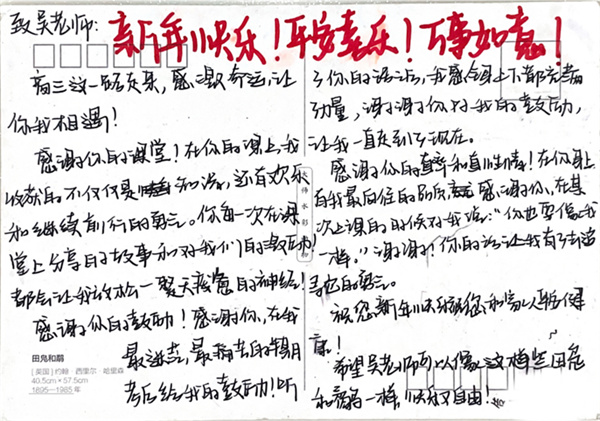 致吴老师：新年快乐！平安喜乐！万事如意！
高三这一路走来，感谢命运让
你我相遇！
感谢你的课堂！在你的课上，我
收获的不仅仅是知识，还有欢乐
和继续前行的勇气。你每一次在课
堂上分享的故事和对我们的鼓励
都会让我放松一整天疲惫的神经！
感谢你的鼓励！感谢你，在我
最迷茫，最痛苦的
考后给我的鼓励！听
了你的话后，我感觉身上下都充满
力量，谢谢你对我的鼓励，
让我一直走到了现在。
感谢你的直率和真性情！在你身上
有我最向往的 感谢你，在某
次上课的时候对我说：“你也要像我
一样。”谢谢！你的话让我有了
的勇气。
祝您新年快乐 您和家人平安健
康！
希望吴老师可以像这
和 一样，快乐自由！
大师水彩
田凫和鹬
［英国］约翰·西里尔·哈里森
40.5cm×57.5cm
1895—1985年